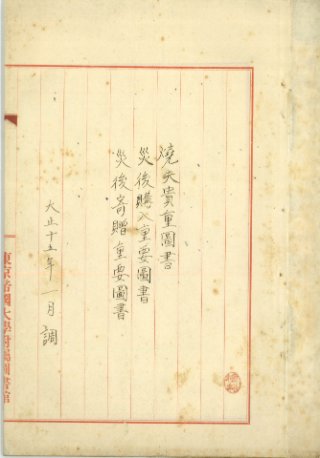 燒失貴重圖書
災後購入重要圖書
災後寄贈重要圖書
大正十五年一月調
東京帝國大學附屬圖書館